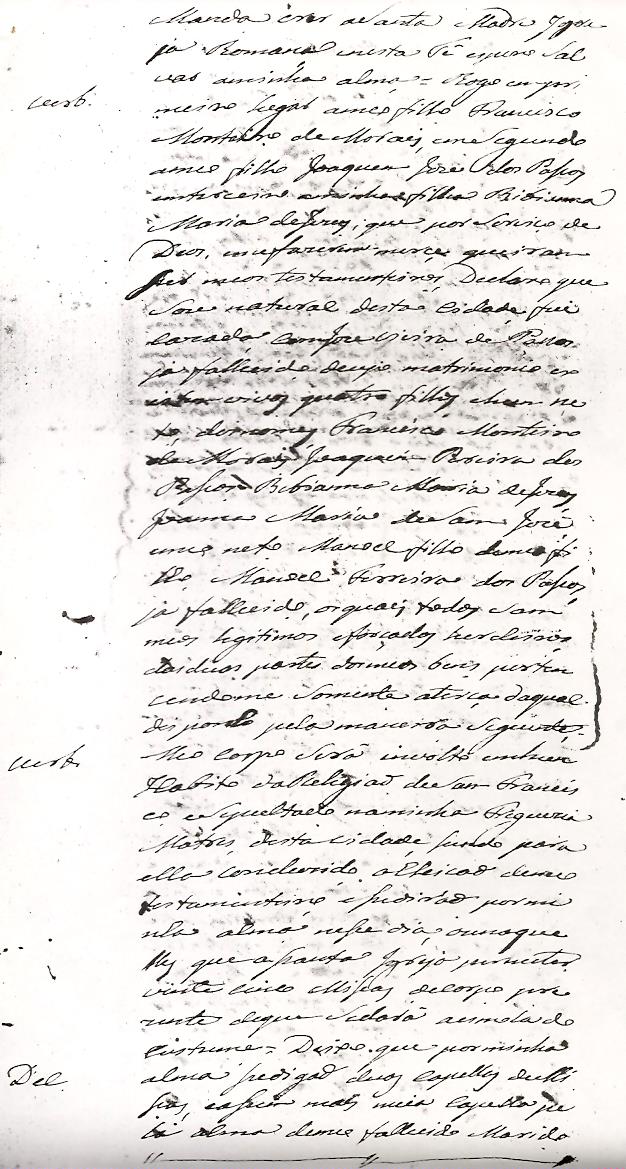 Manda crer a Santa Madre Igre
ja Romana e nesta Fé espero Sal
var a minha alma = Rogo em pri
verb.
meiro lugar a meo filho Francisco
Monteiro de Moraes, em Segundo
a meo filho Joaquim José dos Passos
em terceiro a minha filha Bibianna
Maria de Jesus, que por Servico de
Deos, e me fazerem merce queiram
ser meos testamenteiros, Declaro que
Sou natural desta Cidade, fui
cazada com José Vieira de Passos
ja fallecido de cujo matrimonio ex
istem vivos quatro filhos e hum ne
to, de nomes Francisco Monteiro
de Moraes, Joaquim Pereira dos
Passos Bibianna Maria de Jesus
Joanna Maria de San José
e meo neto Manoel filho de meo fi
lho Manoel Ferreira dos Passos,
ja fallecido, os quaes todos Sam
meos legitimos e forçados herdeiros
das duas partes dos meos bens, perten
cendome Somente a terça da qual
disponho pela maneira Seguinte,
verb.
Meo Corpo Será involto em hum
Habito da Religiaõ de San Francis
co e Sepultado na minha Freguezia
Matris, desta Cidade, sendo para
ella Conduzido a Eleicaõ de meo
testamenteiro e se diraõ por mi
nha alma nesse dia, ou naque
lles que a Santa Igreja permitir
vinte cinco Missas de corpo pre
zente de que Se dará a esmola do
Custume = Deixo que por minha
Del.
alma se digaõ duas Capellas de Mi
ssas, e assim mais meia Capella pe
la alma de meo fallecido Marido